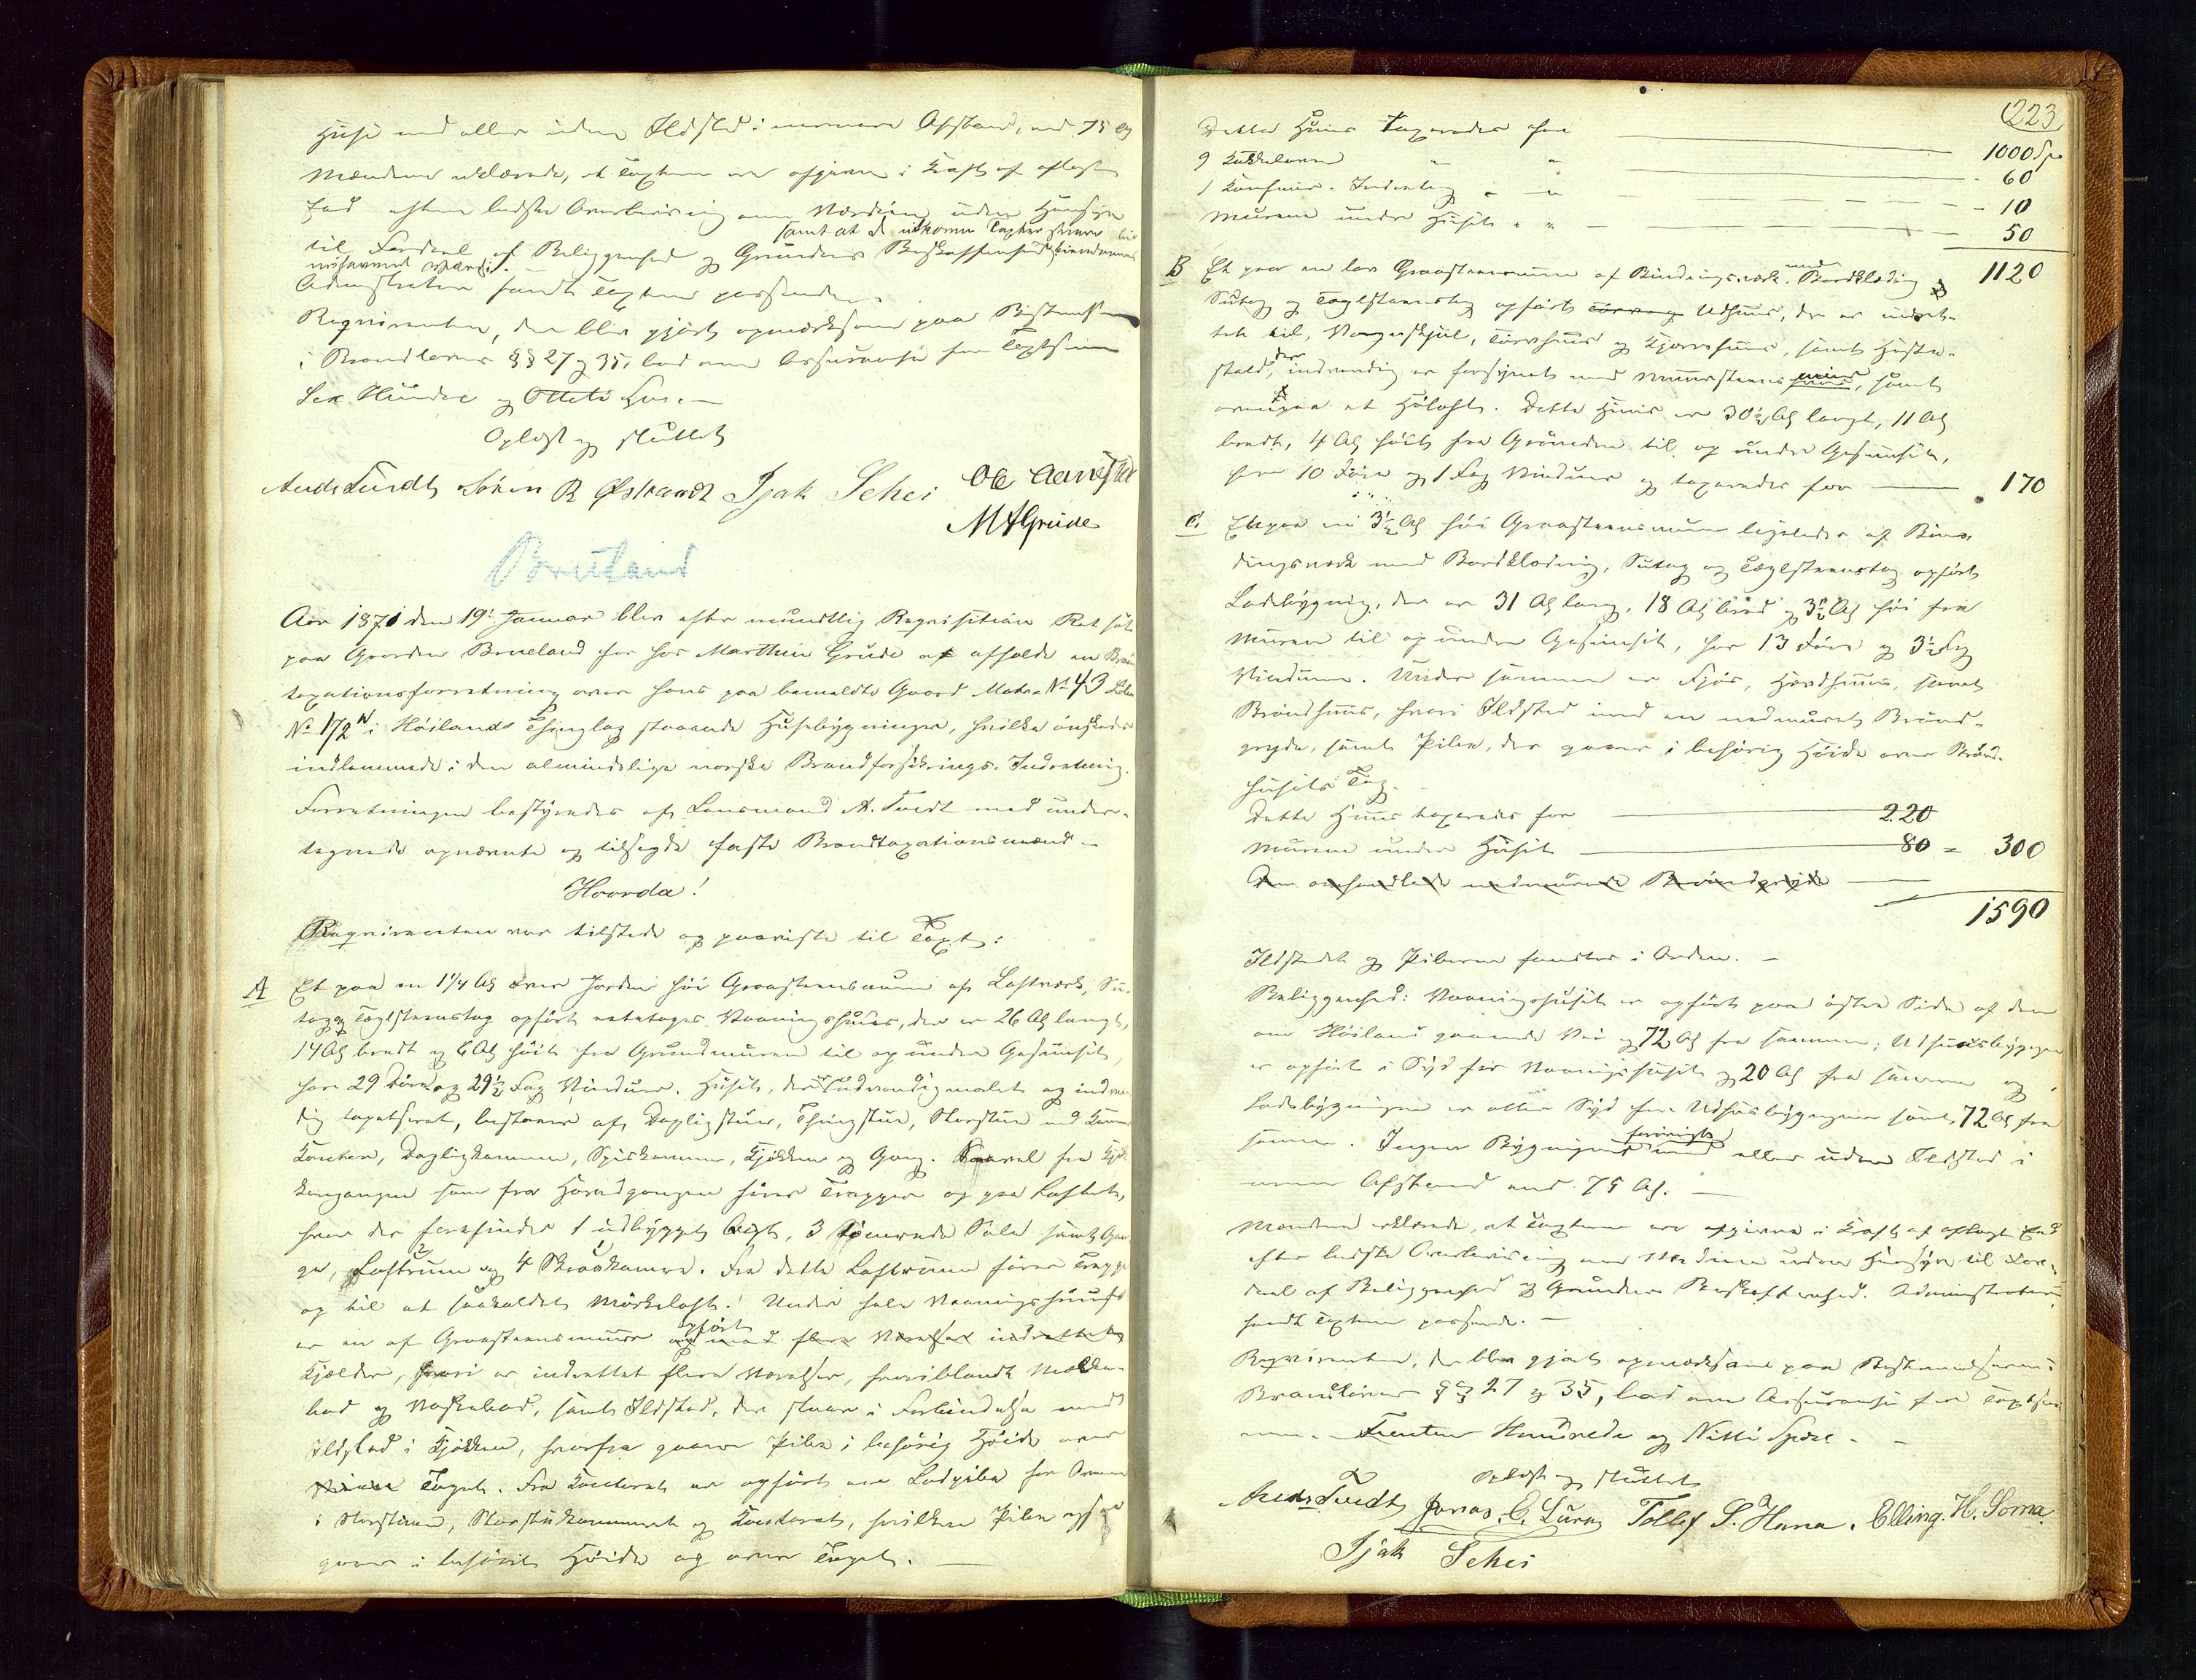 Huse med eller uden Ildsted i nærmere Afstand, end 75 Al
Mændene erklærede, at Taxten var afgiven i Kraft af aflagt
Eed efter bedste Overbeviisning om Værdien uden Hensyn
samt at de udkomne Taxter svarer
til Fordeel af Beliggenhed og Grundens Beskaffenhed
Administrator fandt Taxten passende.
Requirenten, der blev gjort opmærksom paa Bestemmelserne
i Brandlovens §§ 27 og 35, lod om Assurance for Taxtsum
Sex Hundre og Otteti
Oplæst og sluttet
Ands Tvedt Sören R Østraadt Isak Schei
M A Grude
Brueland
Aar 1871 den 19de Januar blev efter mundtlig Requisition Ret sat
paa Gaarden Brueland for hos Marthin Grude at afholde en Brand
taxationsforretning over hans paa bemeldte Gaard Matr. No 43 Løbe
No 172 i Høilands Thinglag staaende Husebygninger, hvilke ønskedes
indlemmede i den almindelige norske Brandforsikrings-Indretning.
Forretningen bestyredes af Lensmand A. Tvedt med under-
tegnede opnævnte og tilsagde faste Brandtaxationsmænd -
Hvorda!
Requirenten var tilstede og paaviste til Taxt:
A Et paa en 1¼ Al over Jorden høi Graasteensmuur af Laftværk, Su-
tag og Taglsteenstag opført toetages Vaaningshuus, der er 26 Al langt,
14 Al bredt og 6 Al høit fra Grundmuren til op under Gesimset,
har 29 Döre og 29½ Fag Vinduer. Huset, der er udvendig malet og indven-
dig tapetseret, bestaaer af Dagligstue, Thingstue, Storstue med Kammer
Kontor, Dagligkammer, Spiskammer, Kjøkken og Gang. Saavel fra Kjøk-
kengangen som fra Hovedgangen fører Trapper op paa Loftet,
hvor der forefindes 1 udbygget Qvist, 3 tømrede Sale samt Gan-
ge, 2 Loftrum og 4 Skraakamre. Fra dette Loftrum fører Trappe
op til et saakaldet Mörkeloft. Under hele Vaaningshuset
er en af Graasteensmuur opført og med flere Værelser indrettet
Kjælder, hvori er indrettet flere Værelser, hvoriblandt Melke-
bod og Vaskebod, samt Ildsted, der staar i Forbindelse med
Ildsted i Kjøkken, hvorfra gaaer Pibe i behørig Høide over
Taget. Fra Kontoret er opført en Ladpibe for Ovnene
i Storstuen, Storstukammeret og Kontoret, hvilken Pibe ogsaa
gaaer i behørig Høide op over Taget. -
223
Dette Huus taxeredes for 1000 Spd
9 Kakkelovne " " 60
1 Komfur-Indretng " " 10
Murene under Huset " " 50
B Et paa en lav Graasteensmuur af Bindingsværk med Bordklædning 1120
Sutag og Taglsteenstag opført Udhuus, der er indret-
tet til, Vognskjul, Törvhuus og Kjørehuus, samt Heste-
stald, der indvendig er forsynet med Muursteens muur, samt
ovenpaa et Höloft. Dette Huus er 30½ Al langt, 11 Al
bredt, 4 Al høit fra Grunden til op under Gesimset,
har 10 Döre og 1 Fag Vinduer og taxeredes for 170
C. Et paa en 3½ Al høi Graasteensmuur ligeledes af Bin-
dingsværk med Bordklædning, Sutag og Taglsteenstag opført
Ladebygning, der er 31 Al lang, 18 Al bred og 3½ Al høi fra
Muren til op under Gesimset, har 13 Döre og 3½ Fag
Vinduer. Under samme er Fjøs, samt
Brøndhuus, hvori Ildsted med en nedmuret Brönd-
gryde, samt Pibe, der gaaer i behørig Høide over Brönd-
husets Tag.
Dette Huus taxeredes for 220
Murene under Huset 80 = 300
Den omhandlede nedmurede Bröndgryde
1590
Ildstedet og Piberne fandtes i Orden. -
Beliggenhed: Vaaningshuset er opført paa østre Side af den
om Høiland gaaende Vei og 72 Al fra samme; Udhuusbygngen
er opført i Syd for Vaaningshuset og 20 Al fra samme og
Ladebygningen er atter Syd for Udhusbygningen samt 72 Al fra
samme. Ingen Bygninger forövrigt med eller uden Ildsted i
nærmere Afstand end 75 Al. -
Mændene erklærede, at Taxten var afgiven i Kraft af aflagt Eed
efter bedste Overbeviisning om Værdien uden Hensyn til For-
deel af Beliggenhed og Grundens Beskaffenhed. Administrator
fandt Taxten passende. -
Requirenten, der blev gjort opmærksom paa Bestemmelserne i
Brandlovens §§ 27 og 35, lod om Assurance for Taxtsum
men - Femten Hundrede og Nitti Spdlr. -
Oplæst og sluttet
Ands Tvedt Jonas C. Lura, Tollef S. Hana. Elling. H. Soma.
Isak Schei